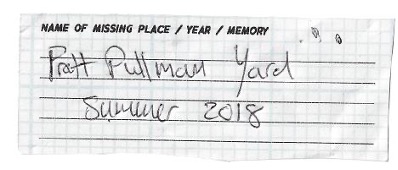 NAME OF MISSING PLACE / YEAR / MEMORY
Pratt Pullman Yard
Summer 2018